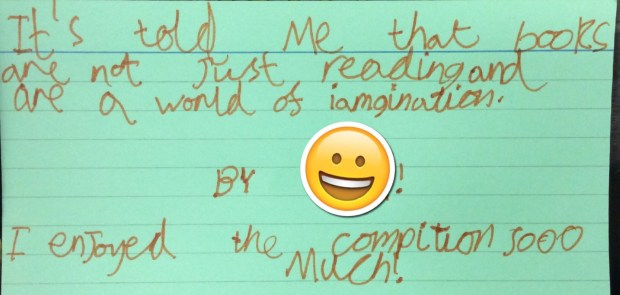 It's told me that books
are not just reading and
are a world of iamgination.
BY !
I enjoyed the compition sooo
Much!